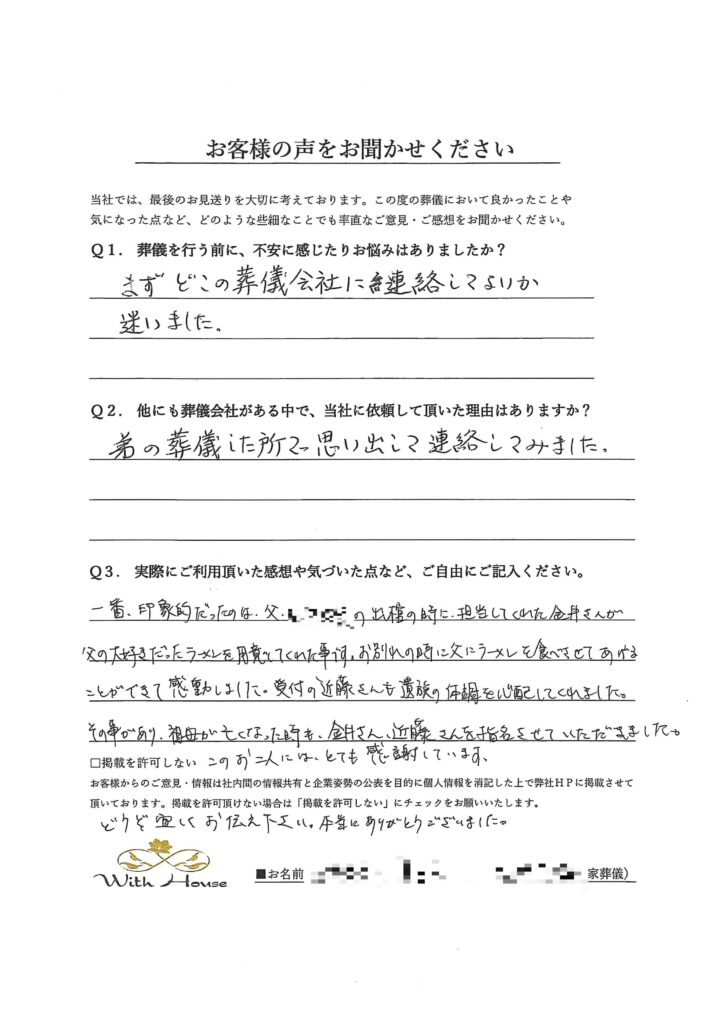 お客様の声をお聞かせください
当社では、最後のお見送りを大切に考えております。この度の葬儀において良かったことや
気になった点など、どのような些細なことでも率直なご意見・ご感想をお聞かせください。
Q1. 葬儀を行う前に、不安に感じたりお悩みはありましたか？
まずどこの葬儀会社に連絡してよいか
迷いました。
Q2. 他にも葬儀会社がある中で、当社に依頼して頂いた理由はありますか？
弟の葬儀した所で思い出して連絡してみました。
Q3. 実際にご利用頂いた感想や気づいた点など、ご自由にご記入ください。
一番、印象的だったのは、父、の出棺の時に、担当してくれた金井さんが
父の大好きだったラーメンを用意してくれた事です。お別れの時に父にラーメンを食べさせてあげる
ことができて感動しました。受付の近藤さんも遺族の体調を心配してくれました。
その事があり、祖母が亡くなった時も、金井さん、近藤さんを指名させていただきました。
□掲載を許可しない このお二人には、とても感謝しています。
お客様からのご意見・情報は社内間の情報共有と企業姿勢の公表を目的に個人情報を消記した上で弊社HPに掲載させて
頂いております。掲載を許可頂けない場合は「掲載を許可しない」にチェックをお願いいたします。
どうぞ宜しくお伝え下さい。本当にありがとうございました。
With House ■お名前 家葬儀）